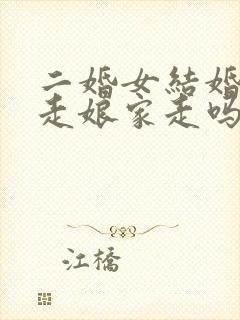 二婚女結婚
走娘家走吗
江橋